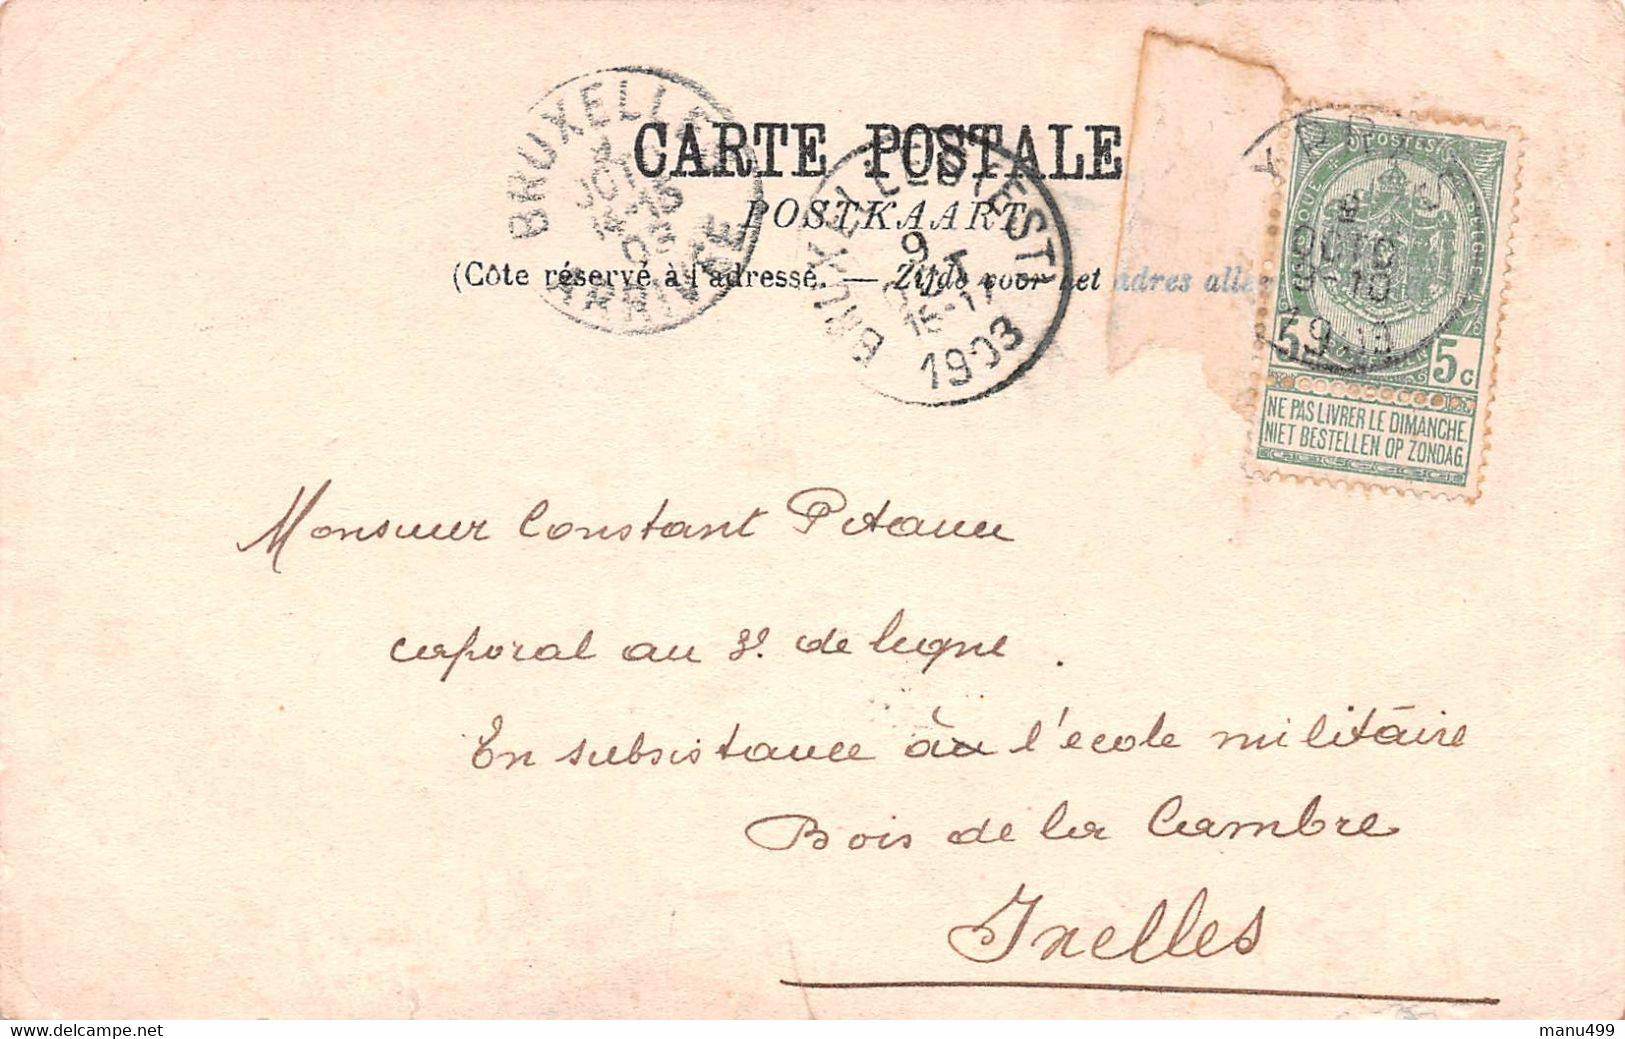 BRUXELLES
ARRIVÉE
CARTE POSTALE
POSTKAART
(Côte réservé à l'adresse. — Zijde voor het adres alle
BRUXELLES (EST)
9
15-17
1903
POSTES
5 5c
NE PAS LIVRER LE DIMANCHE.
NIET BESTELLEN OP ZONDAG.
Monsieur Constant
caporal au 3e. de ligne.
En subsistance à l'école militaire
Bois de la Cambre
Ixelles
delcampe.net
manu499